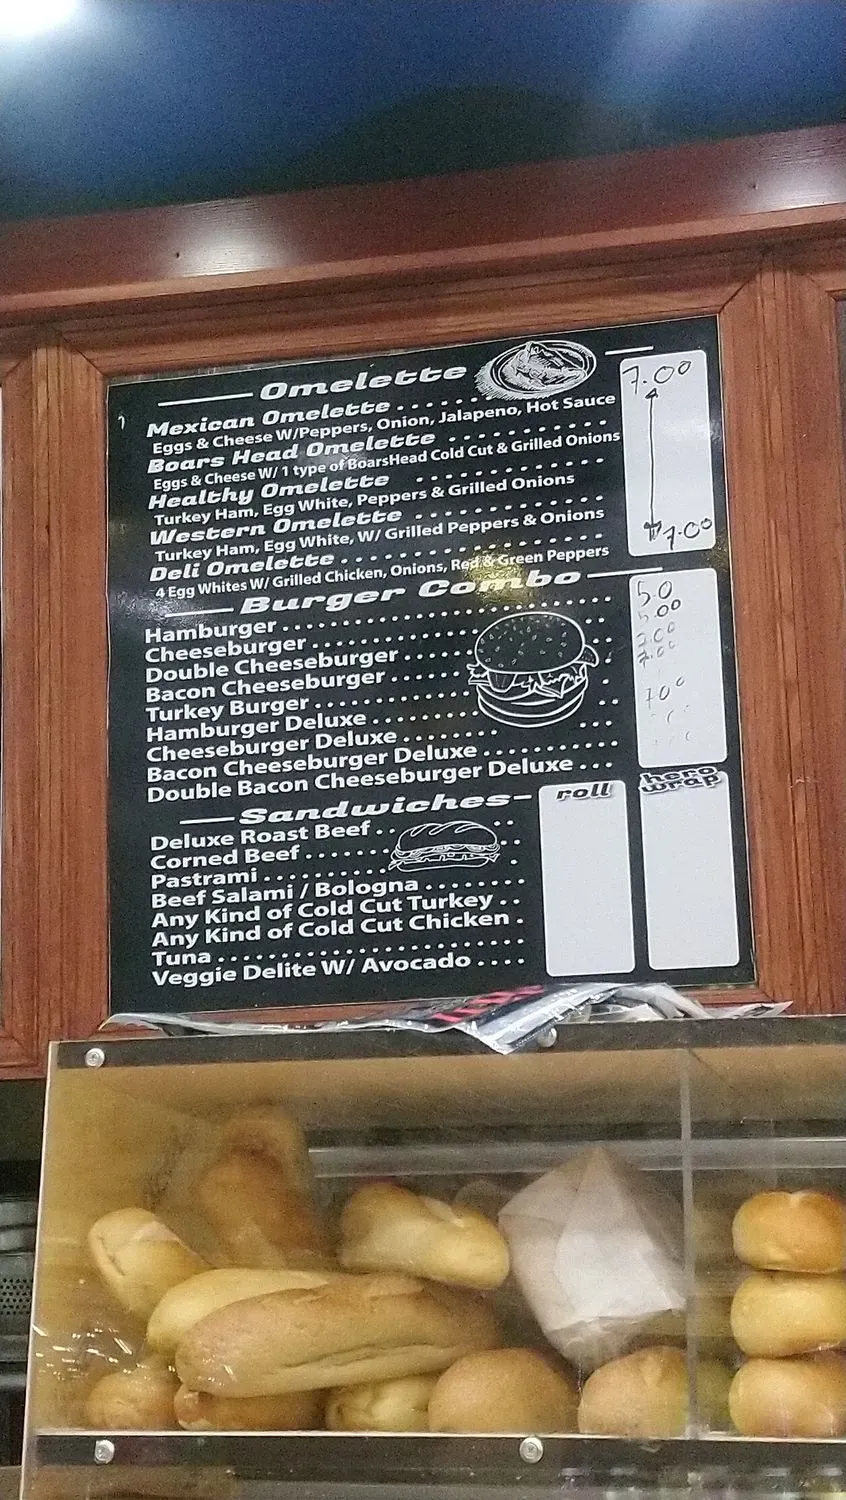 Omelette
7.00
Mexican Omelette . . . . . .
Eggs & Cheese W/Peppers, Onion, Jalapeno, Hot Sauce
Boars Head Omelette . . . . . . . . . .
Eggs & Cheese W/ 1 type of BoarsHead Cold Cut & Grilled Onions
Healthy Omelette . . . . . . . . . . . .
Turkey Ham, Egg White, Peppers & Grilled Onions
Western Omelette . . . . . . . . . . . .
Turkey Ham, Egg White, W/ Grilled Peppers & Onions
7.00
Deli Omelette . . . . . . . . . . . . . . . .
4 Egg Whites W/ Grilled Chicken, Onions, Red & Green Peppers
Burger Combo
Hamburger . . . . . . . . . . . . . . . . . . . . . . 5.0
Cheeseburger . . . . . . . . . . . 5.00
Double Cheeseburger . . . . . . 7.00
Bacon Cheeseburger . . . . . . . 7.00
Turkey Burger . . . . . . . . . . . .
Hamburger Deluxe . . . . . . . .
Cheeseburger Deluxe . . . . . . . .
Bacon Cheeseburger Deluxe . . . . . . . . . .
Double Bacon Cheeseburger Deluxe . . .
Sandwiches
roll
hero
wrap
Deluxe Roast Beef . .
Corned Beef . . . . . . .
Pastrami . . . . . . . . . . .
Beef Salami / Bologna . . . . . . . .
Any Kind of Cold Cut Turkey . .
Any Kind of Cold Cut Chicken .
Tuna . . . . . . . . . . . . . . . . . . . . . . . .
Veggie Delite W/ Avocado . . . .